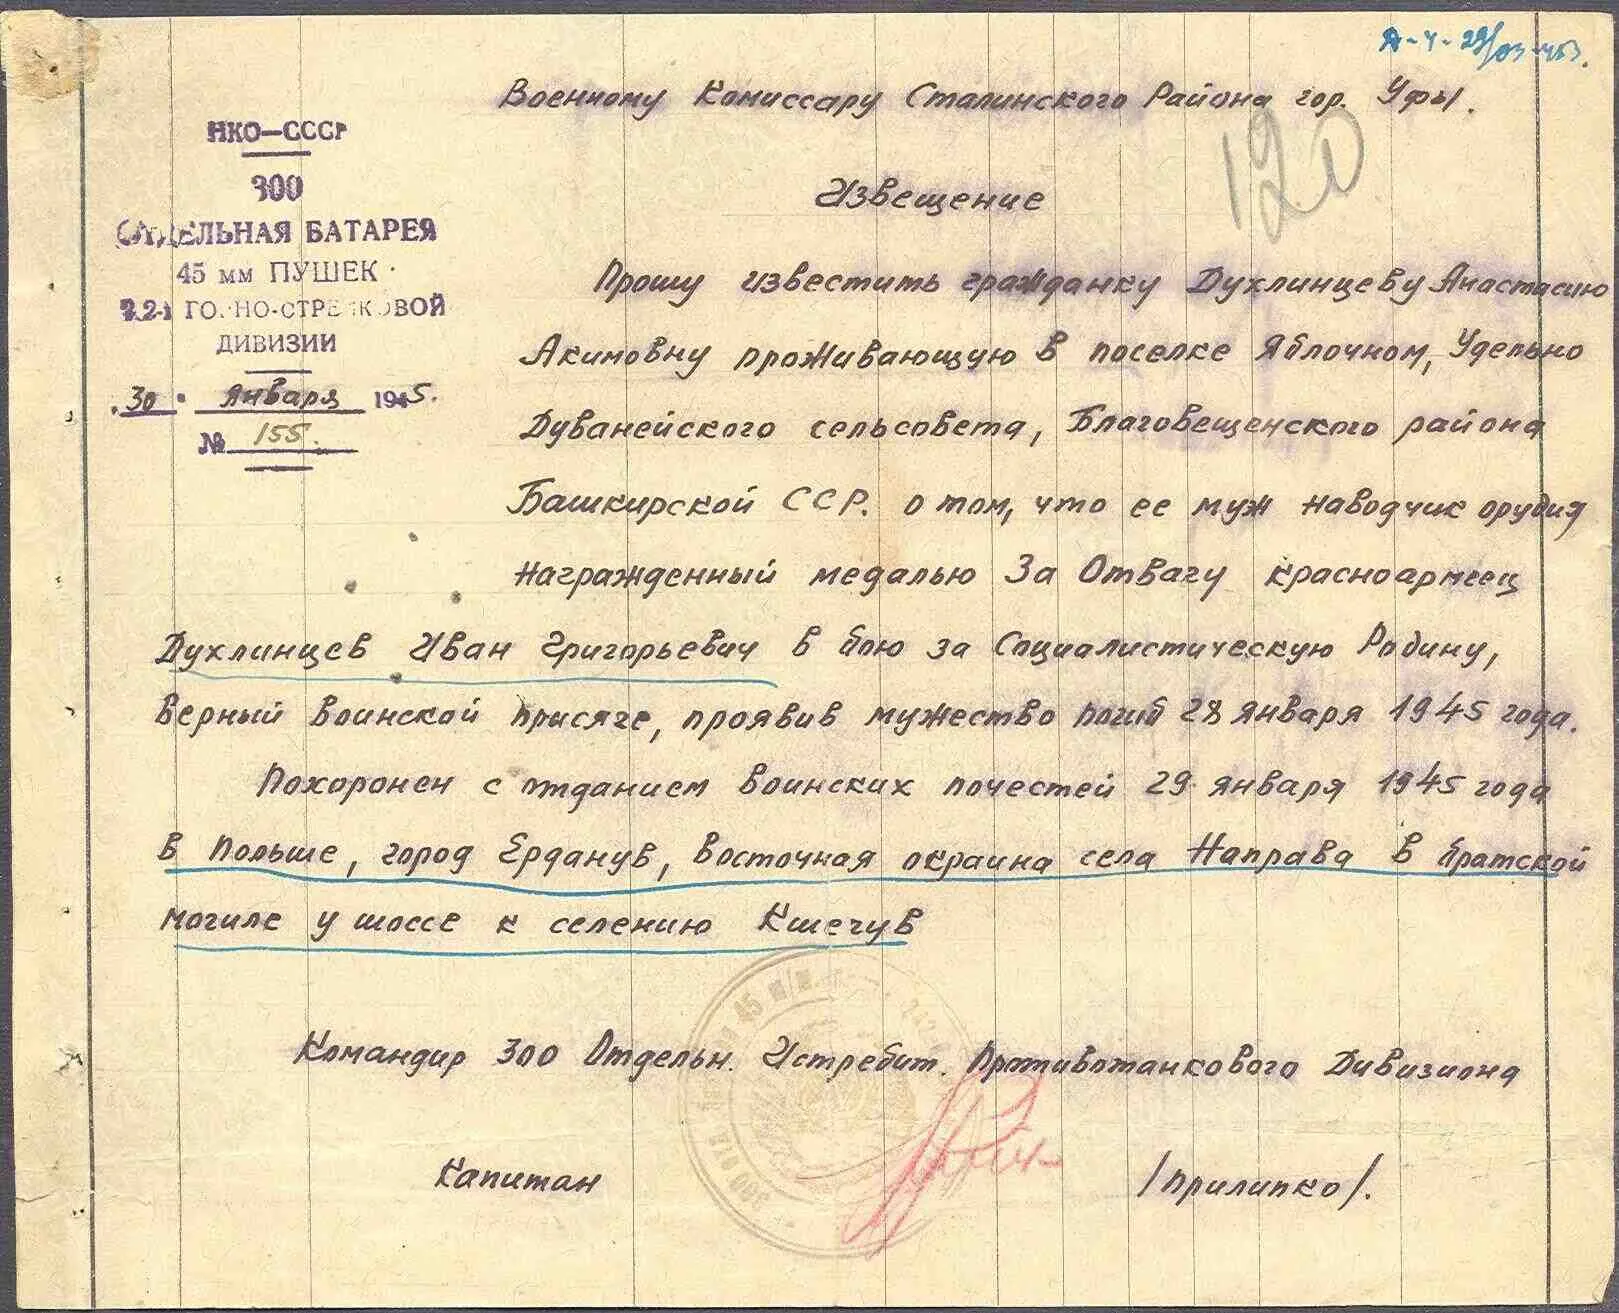 Военному Комиссару Сталинского Района гор. Уфы.
120
НКО—СССР
300
ОТДЕЛЬНАЯ БАТАРЕЯ
45 мм ПУШЕК
ГОРНО-СТРЕЛКОВОЙ
ДИВИЗИИ
30 Января 1945.
№ 155.
Извещение
Прошу известить гражданку Духлинцеву Анастасию
Акимовну проживающую в поселке Яблочном, Удельно
Дуванейского сельсовета, Благовещенского района
Башкирской ССР. о том, что ее муж наводчик орудия
награжденный медалью За Отвагу красноармеец
Духлинцев Иван Григорьевич в бою за Социалистическую Родину,
верный воинской присяге, проявив мужество погиб 28 января 1945 года.
Похоронен с отданием воинских почестей 29 января 1945 года
в Польше, город Ерданув, восточная окраина села Направа в братской
могиле у шоссе к селению Кшечув
Командир 300 Отдельн. Истребит. Противотанкового Дивизиона
Капитан /Прилипко/.